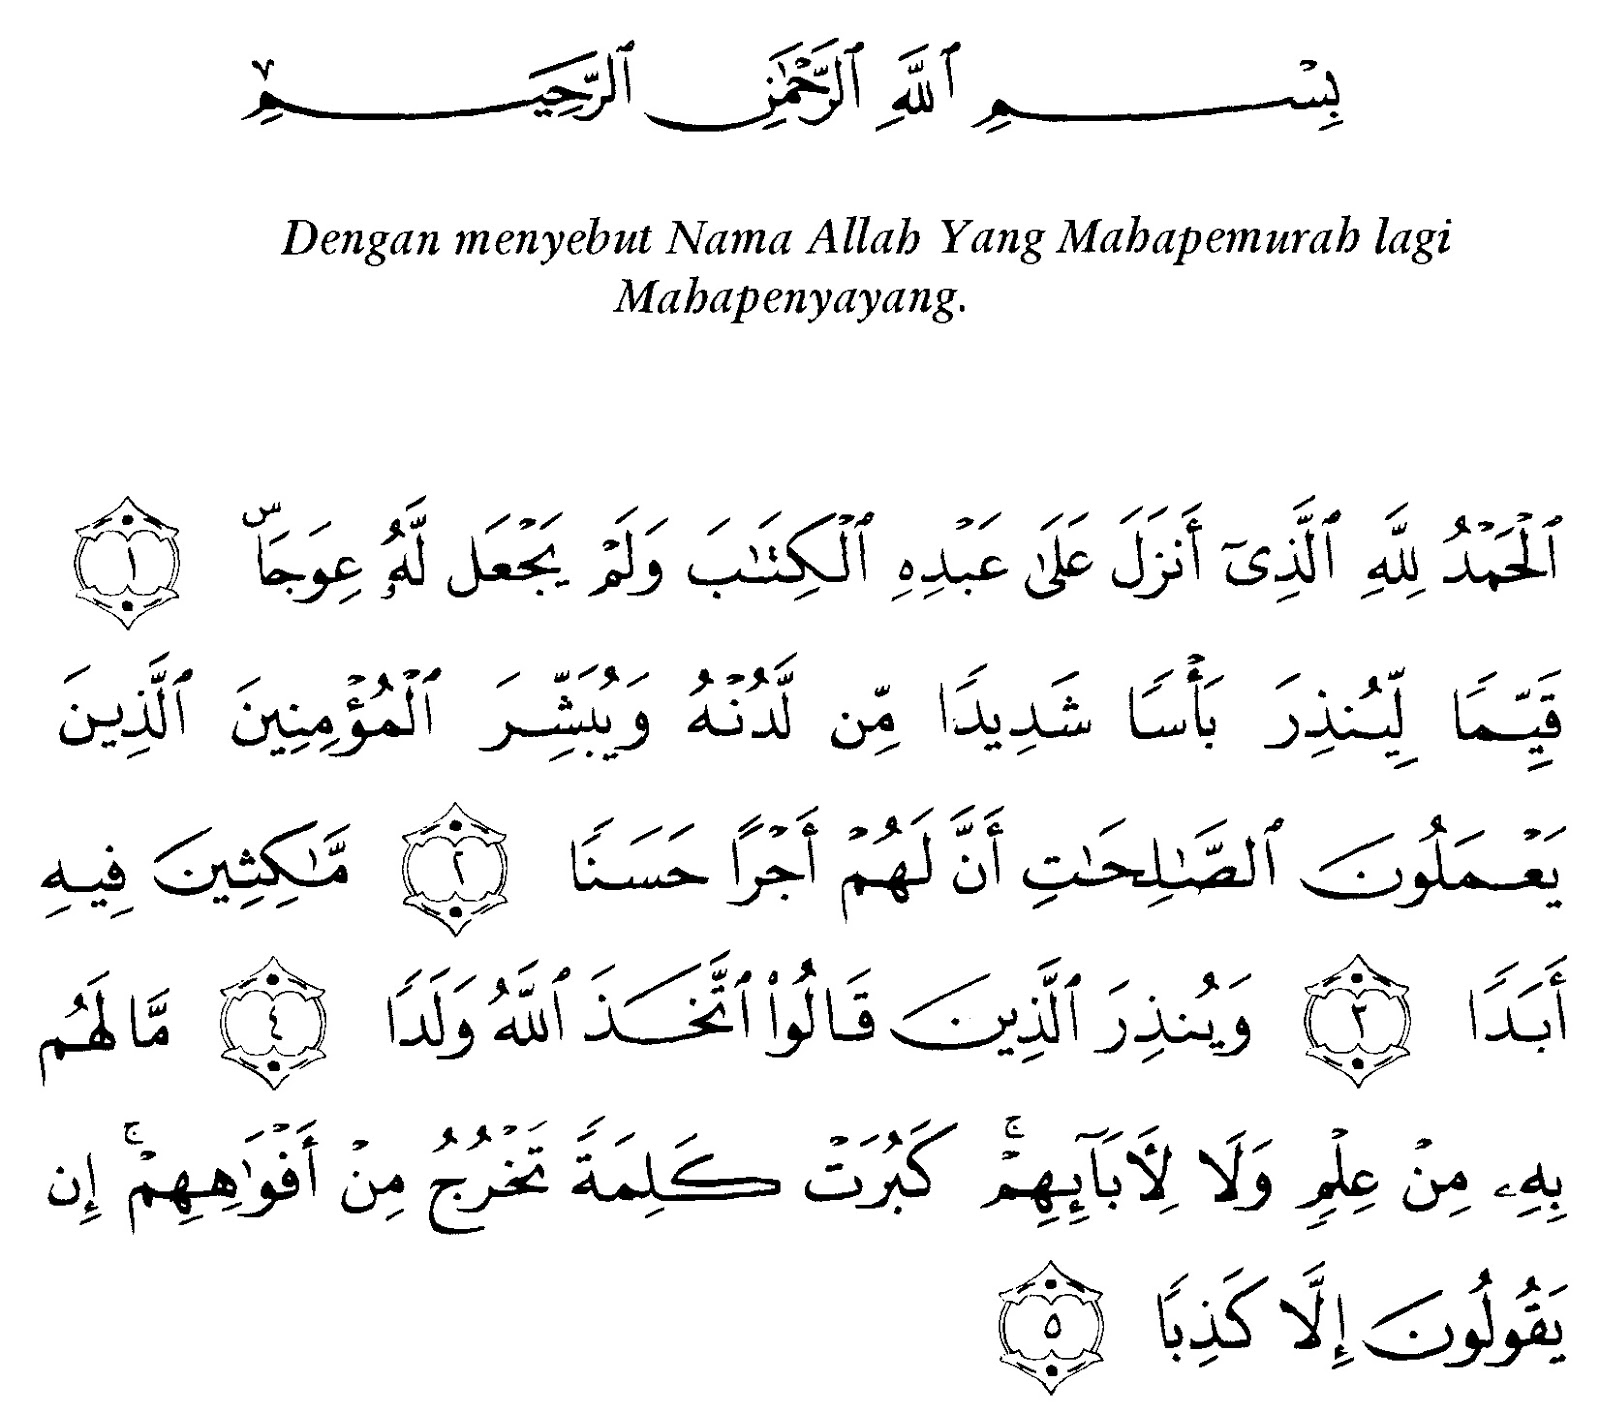 بِسْمِ ٱللَّهِ ٱلرَّحْمَٰنِ ٱلرَّحِيمِ
Dengan menyebut Nama Allah Yang Mahapemurah lagi
Mahapenyayang.
ٱلْحَمْدُ لِلَّهِ ٱلَّذِىٓ أَنزَلَ عَلَىٰ عَبْدِهِ ٱلْكِتَٰبَ وَلَمْ يَجْعَل لَّهُۥ عِوَجَاۜ ١
قَيِّمًا لِّيُنذِرَ بَأْسًا شَدِيدًا مِّن لَّدُنْهُ وَيُبَشِّرَ ٱلْمُؤْمِنِينَ ٱلَّذِينَ
يَعْمَلُونَ ٱلصَّٰلِحَٰتِ أَنَّ لَهُمْ أَجْرًا حَسَنًا ٢ مَّٰكِثِينَ فِيهِ
أَبَدًا ٣ وَيُنذِرَ ٱلَّذِينَ قَالُوا۟ ٱتَّخَذَ ٱللَّهُ وَلَدًا ٤ مَّا لَهُم
بِهِۦ مِنْ عِلْمٍ وَلَا لِأَبَآئِهِمْ ۚ كَبُرَتْ كَلِمَةً تَخْرُجُ مِنْ أَفْوَٰهِهِمْ ۚ إِن
يَقُولُونَ إِلَّا كَذِبًا ٥